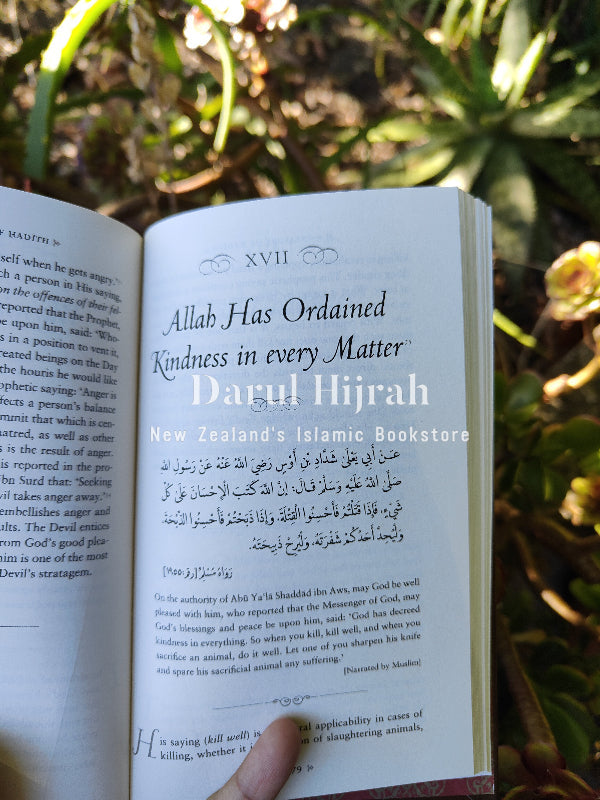 F HADITH
self when he gets angry.
ch a person in His saying,
on the offences of their fel-
reported that the Prophet,
be upon him, said: 'Who-
s in a position to vent it,
reated beings on the Day
the houris he would like
phetic saying: 'Anger is
fects a person's balance
mmit that which is cen-
atred, as well as other
s is the result of anger.
is reported in the pro-
Ibn Surd that: 'Seeking
vil takes anger away.'
embellishes anger and
ults. The Devil entices
from God's good plea-
him is one of the most
Devil's stratagem.
XVII
Allah Has Ordained
Kindness in every Matter
Darul Hijrah
New Zealand's Islamic Bookstore
عَنْ أَبِي يَعْلَىٰ شَدَّادِ بْنِ أَوْسٍ رَضِيَ اللَّهُ عَنْهُ عَنْ رَسُولِ اللَّهِ
صَلَّى اللَّهُ عَلَيْهِ وَسَلَّمَ قَالَ: إِنَّ اللَّهَ كَتَبَ الْإِحْسَانَ عَلَىٰ كُلِّ
شَيْءٍ، فَإِذَا قَتَلْتُمْ فَأَحْسِنُوا الْقِتْلَةَ، وَإِذَا ذَبَحْتُمْ فَأَحْسِنُوا الذِّبْحَةَ،
وَلْيُحِدَّ أَحَدُكُمْ شَفْرَتَهُ، وَلْيُرِحْ ذَبِيحَتَهُ.
رَوَاهُ مُسْلِمٌ [رقم: ١٩٥٥]
On the authority of Abū Ya'lā Shaddād ibn Aws, may God be well
pleased with him, who reported that the Messenger of God, may
God's blessings and peace be upon him, said: 'God has decreed
kindness in everything. So when you kill, kill well, and when you
sacrifice an animal, do it well. Let one of you sharpen his knife
and spare his sacrificial animal any suffering.'
[Narrated by Muslim]
His saying (kill well) is ral applicability in cases of
killing, whether it i on of slaughtering animals,
79